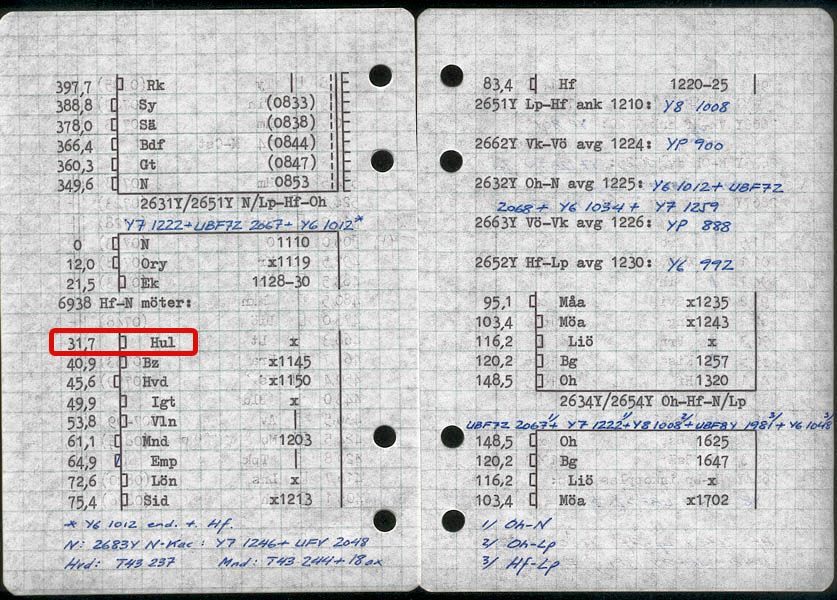 397,7 Rk
388,8 Sy (0833)
378,0 Sä (0838)
366,4 Bdf (0844)
360,3 Gt (0847)
349,6 N 0853
2631Y/2651Y N/Lp-Hf-Oh
Y7 1222+UBF7Z 2067+Y6 1012*
0 N 1110
12,0 Ory x1119
21,5 Ek 1128-30
6938 Hf-N möter:
31,7 Hul x
40,9 Bz x1145
45,6 Hvd x1150
49,9 Igt
53,8 Vln
61,1 Mnd 1203
64,9 Emp
72,6 Lön x
75,4 Sid x1213
* Y6 1012 end. t. Hf.
N: 2683Y N-Kac: Y7 1246+UFV 2048
Hvd: T43 237 Mnd: T43 244+18ax
83,4 Hf 1220-25
2651Y Lp-Hf ank 1210: Y8 1008
2662Y Vk-Vö avg 1224: YP 900
2632Y Oh-N avg 1225: Y6 1012+UBF7Z
2068+ Y6 1034+ Y7 1259
2663Y Vö-Vk avg 1226: YP 888
2652Y Hf-Lp avg 1230: Y6 992
95,1 Måa x1235
103,4 Möa x1243
116,2 Liö x
120,2 Bg 1257
148,5 Oh 1320
2634Y/2654Y Oh-Hf-N/Lp
UBF7Z 2067 1/+ Y7 1222 1/+Y8 1008 2/+UBF8Y 1981 3/+Y6 1048 3/
148,5 Oh 1625
120,2 Bg 1647
116,2 Liö x
103,4 Möa x1702
1/ Oh-N
2/ Oh-Lp
3/ Hf-Lp